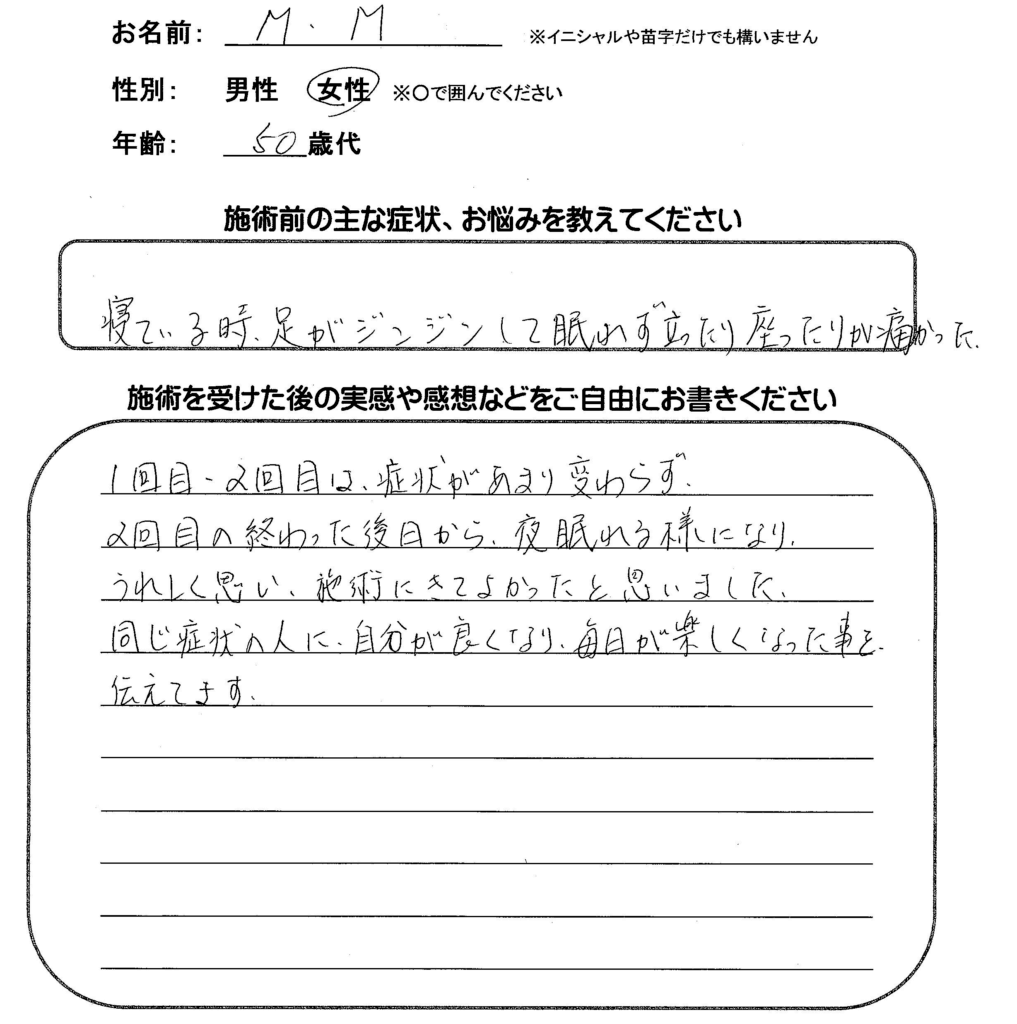 お名前: M.M ※イニシャルや苗字だけでも構いません
性別: 男性 女性 ※○で囲んでください
年齢: 50歳代
施術前の主な症状、お悩みを教えてください
寝ている時、足がジンジンして眠れず立ったり座ったりが痛かった、
施術を受けた後の実感や感想などをご自由にお書きください
1回目・2回目は、症状があまり変わらず、
2回目の終わった後日から、夜眠れる様になり、
うれしく思い、施術にきてよかったと思いました、
同じ症状の人に、自分が良くなり、毎日が楽しくなった事を、
伝えてます、